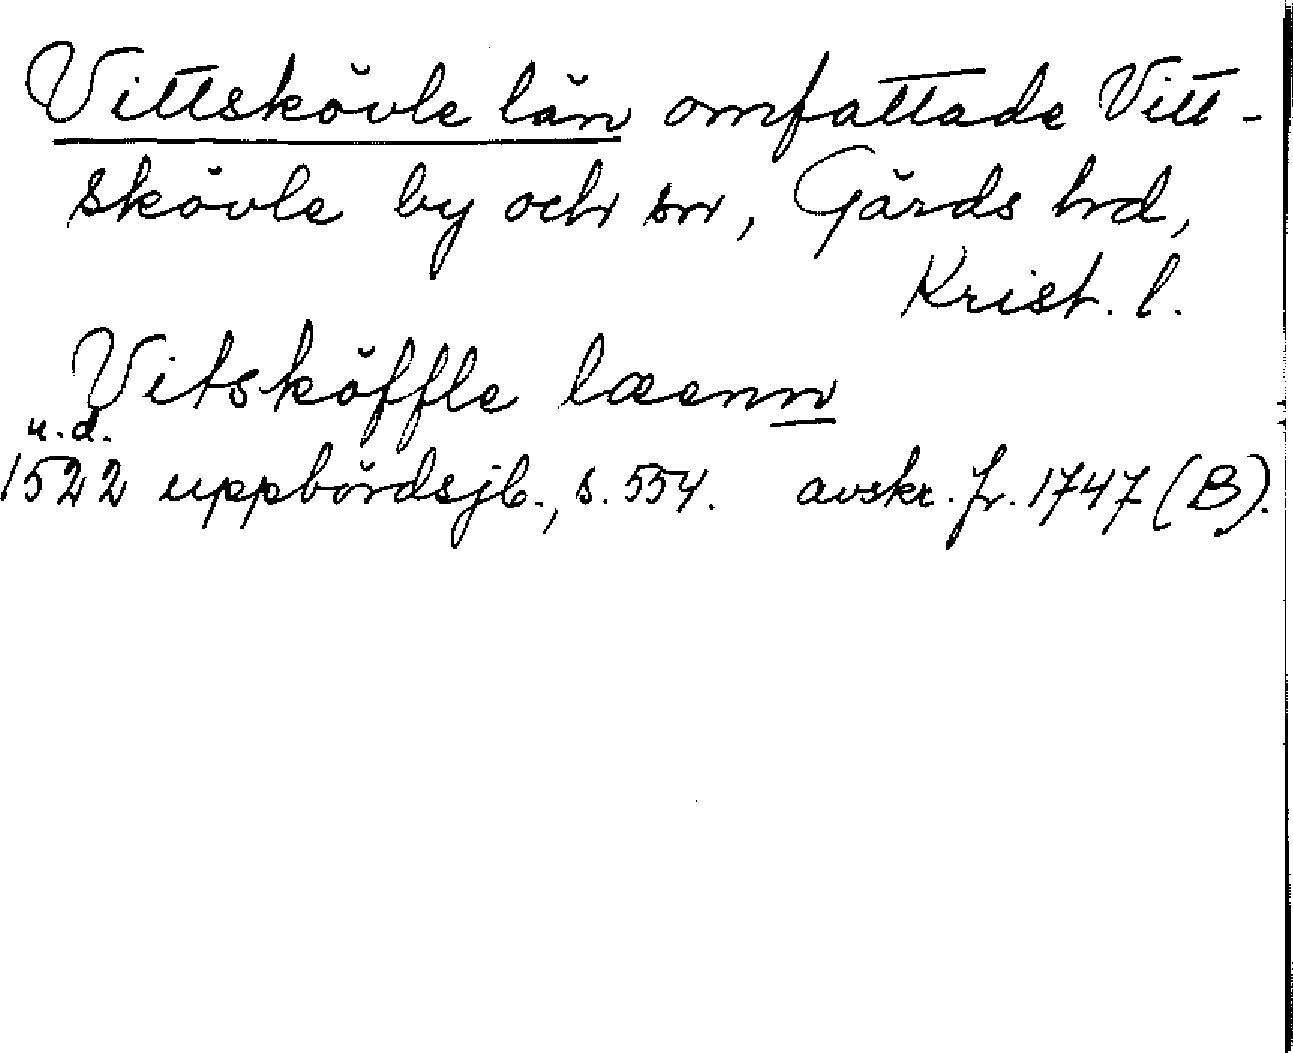 Vittskövle län omfattade Vitt-
skövle by och sn, Gärds hd,
Krist. l.
Vitsköffle læenn
u.d.
1522 uppbördsjb., s. 554. avskr. fr. 1747 (B).